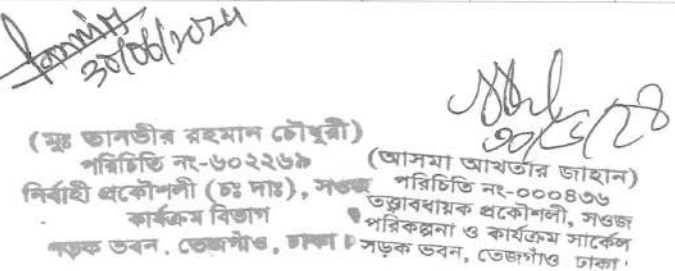 30/06/2024
(মুঃ তানভীর রহমান চৌধুরী)
পরিচিতি নং-৬০২২৬৯
নির্বাহী প্রকৌশলী (চঃ দাঃ), সওজ
কার্যক্রম বিভাগ
সড়ক ভবন, তেজগাঁও, ঢাকা।
৩০/৬/২৪
(আসমা আখতার জাহান)
পরিচিতি নং-০০০৪৩৬
তত্ত্বাবধায়ক প্রকৌশলী, সওজ
পরিকল্পনা ও কার্যক্রম সার্কেল
সড়ক ভবন, তেজগাঁও ঢাকা।